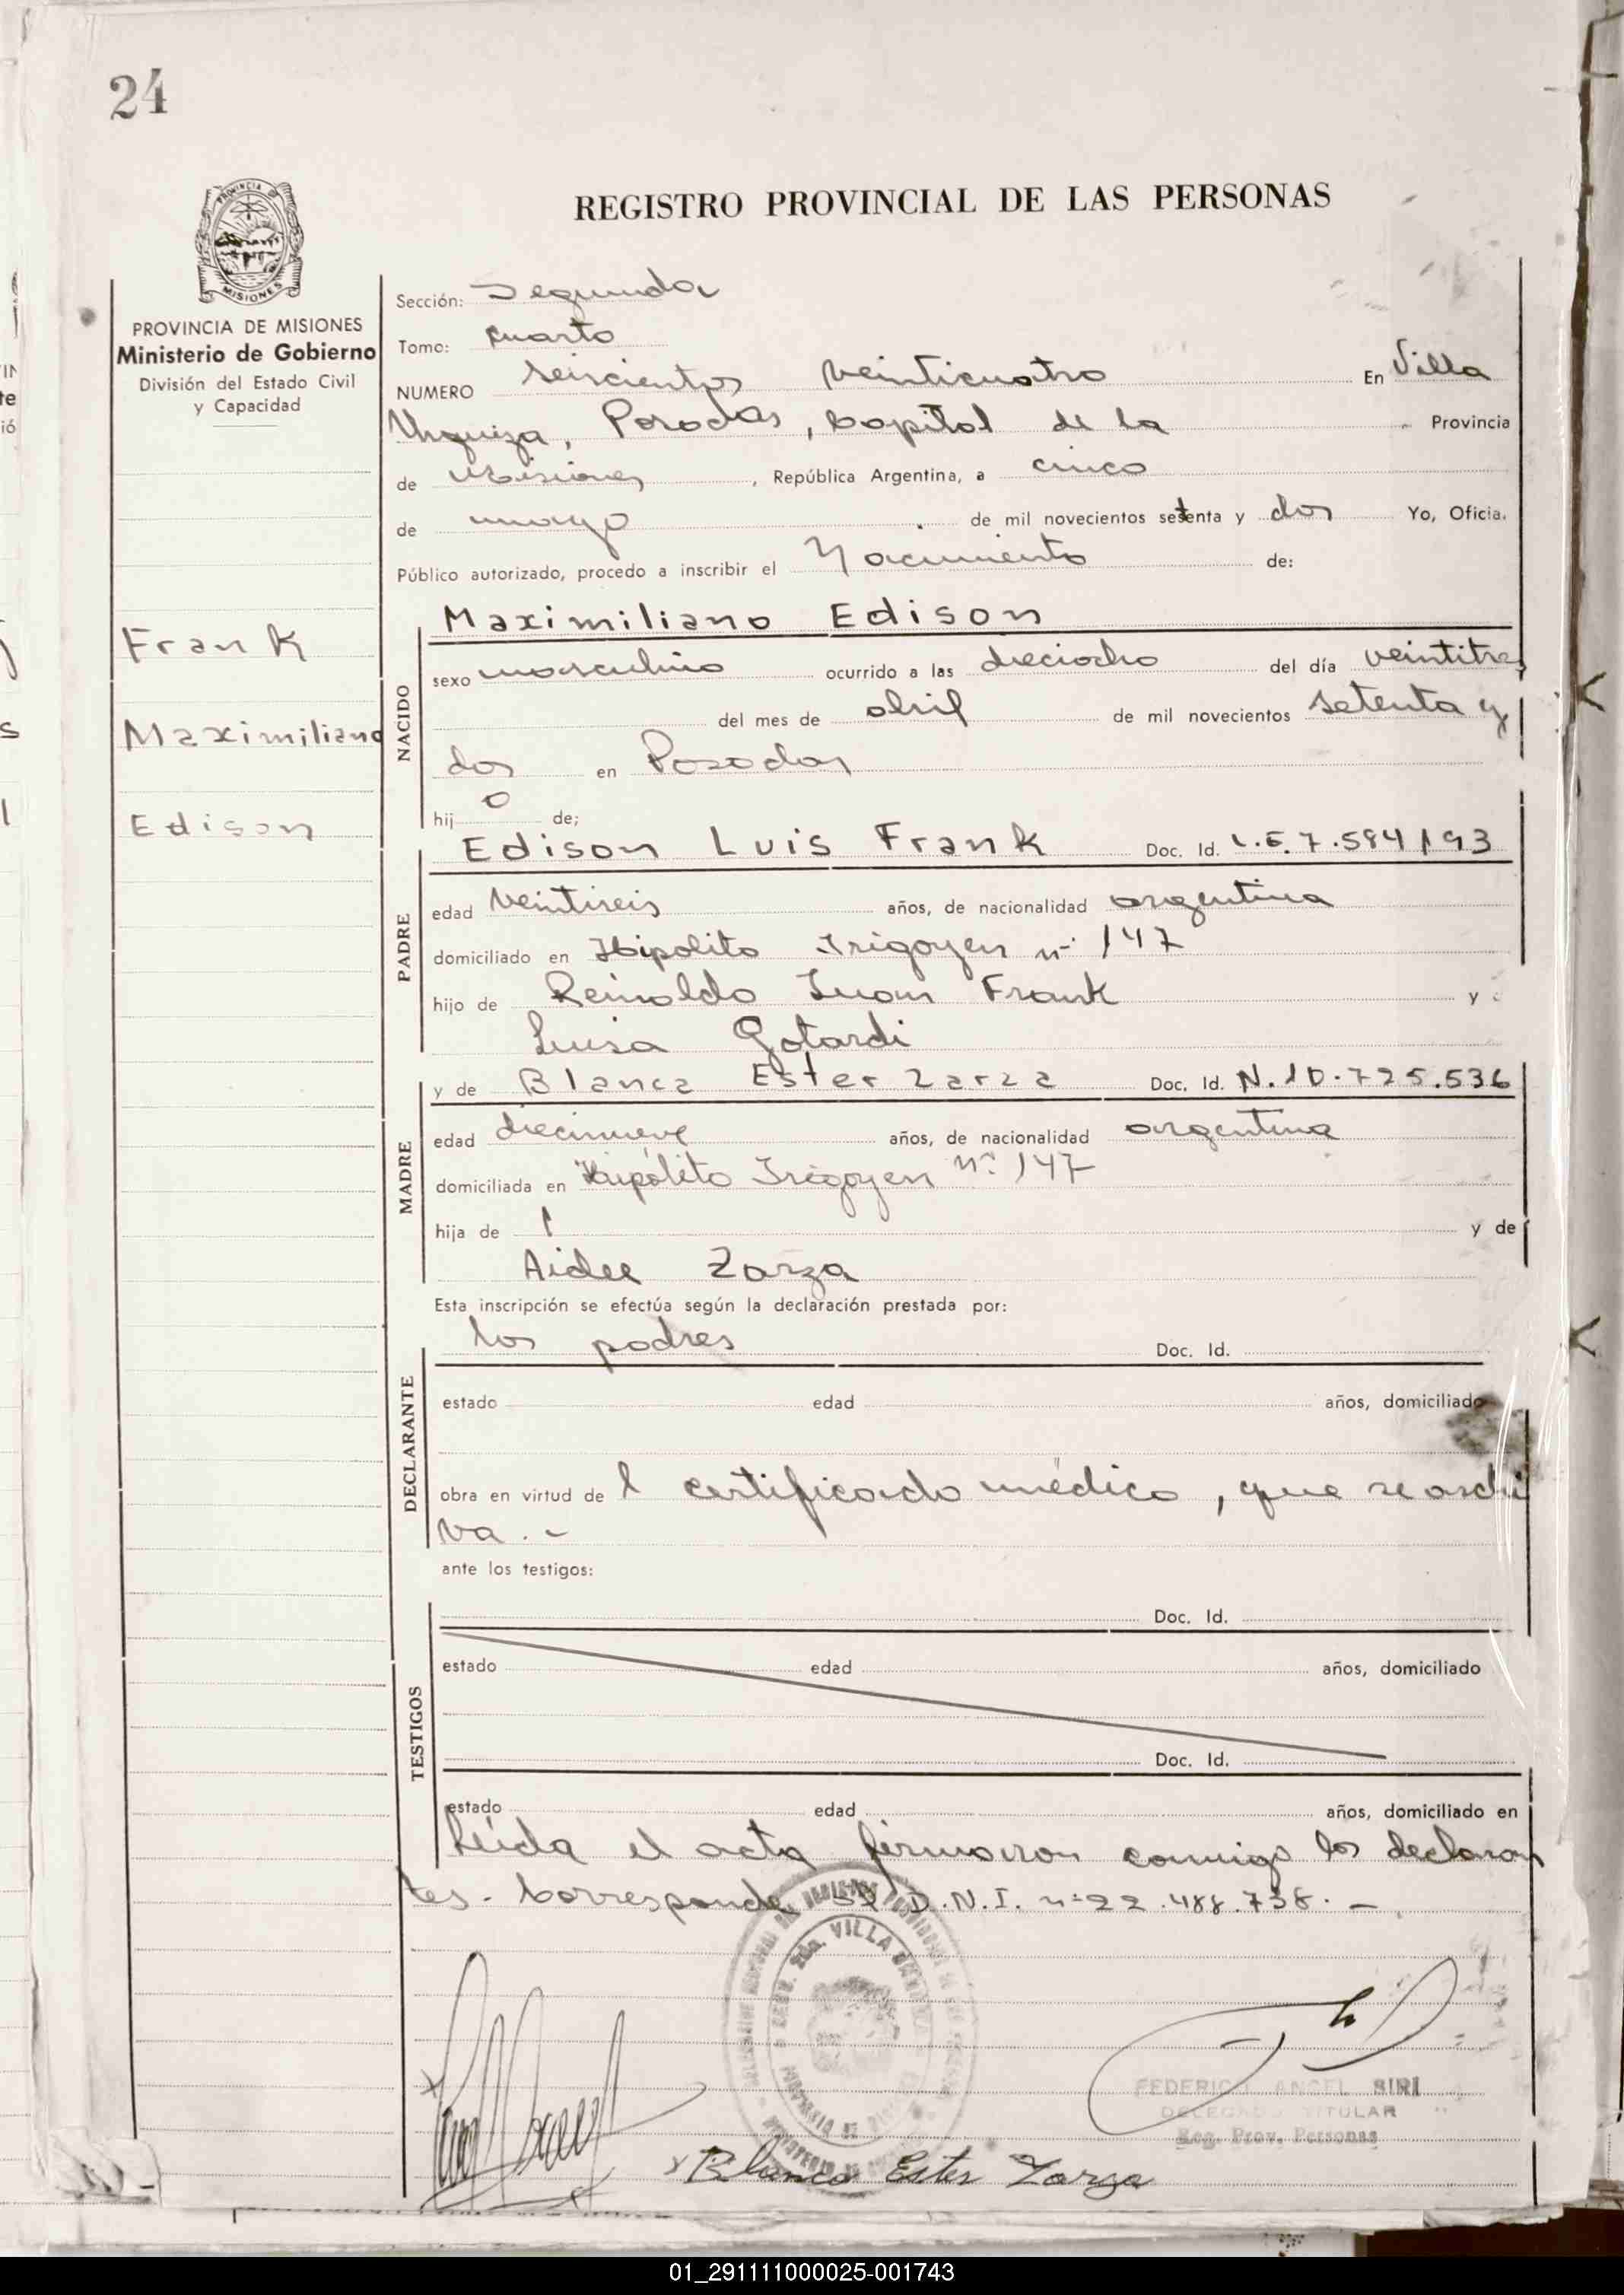 24
PROVINCIA
MISIONES
REGISTRO PROVINCIAL DE LAS PERSONAS
PROVINCIA DE MISIONES
Ministerio de Gobierno
División del Estado Civil
y Capacidad
Frank
Maximiliano
Edison
Sección: Segunda
Tomo: cuarto
NUMERO seiscientos veinticuatro En Villa
Urquiza, Posadas, Capital de la Provincia
de Misiones, República Argentina, a cinco
de mayo de mil novecientos setenta y dos Yo, Oficia.
Público autorizado, procedo a inscribir el Nacimiento de:
NACIDO
Maximiliano Edison
sexo masculino ocurrido a las dieciocho del día veintitres
del mes de abril de mil novecientos setenta y
dos en Posadas
hijo de;
PADRE
Edison Luis Frank Doc. Id. L.E. 7.584.193
edad veintiseis años, de nacionalidad argentina
domiciliado en Hipolito Irigoyen nº 147
hijo de Reinoldo Juan Frank y
Luisa Gotardi
MADRE
y de Blanca Ester Zarza Doc. Id. N. 10.725.536
edad diecinueve años, de nacionalidad argentina
domiciliada en Hipólito Irigoyen Nº 147
hija de y de
Aidee Zarza
Esta inscripción se efectúa según la declaración prestada por:
DECLARANTE
los padres Doc. Id.
estado edad años, domiciliado
obra en virtud de l certificado médico, que se archi
va.-
ante los testigos:
TESTIGOS
Doc. Id.
estado edad años, domiciliado
Doc. Id.
estado edad años, domiciliado en
Leída el acta firmaron conmigo los declaran
tes.- Corresponde el D.N.I. nº 22.488.738.-
VILLA URQUIZA
FEDERICO ANGEL SIRI
DELEGADO TITULAR
Reg. Prov. Personas
x Blanca Ester Zarza
01_291111000025-001743